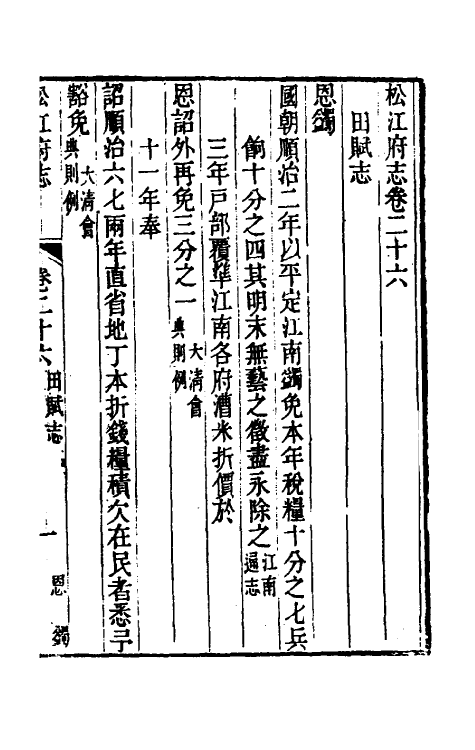 松江府志卷二十六
田賦志
恩蠲
國朝順治二年以平定江南蠲免本年稅糧十分之七兵
餉十分之四其明末無藝之徵盡永除之江南通志
三年戸部覆準江南各府漕米折價於
恩詔外再免三分之一大清會典則例
十一年奉
詔順治六七兩年直省地丁本折錢糧積欠在民者悉予
豁免大清會典則例
松江府志 卷二十六 田賦志 一 恩蠲